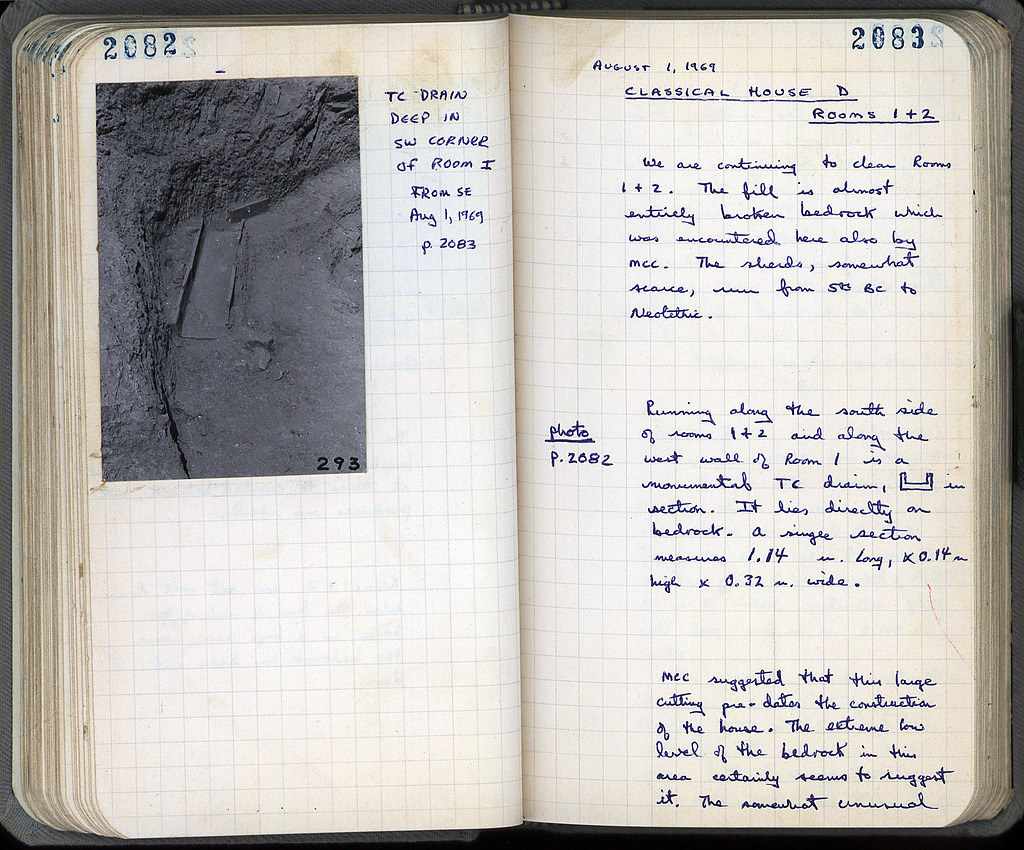 2082
TC DRAIN
DEEP IN
SW CORNER
OF ROOM I
FROM SE
Aug 1, 1969
p. 2083
293
2083
AUGUST 1, 1969
CLASSICAL HOUSE D
ROOMS 1+2
We are continuing to clear Rooms
1 + 2. The fill is almost
entirely broken bedrock which
was encountered here also by
MCC. The sherds, somewhat
scarce, run from 5th BC to
Neolithic.
photo
p. 2082
Running along the south side
of rooms 1+2 and along the
west wall of Room 1 is a
monumental TC drain, in
section. It lies directly on
bedrock. A single section
measures 1.14 m. long, x 0.14 m
high x 0.32 m. wide.
MCC suggested that this large
cutting pre-dates the construction
of the house. The extreme low
level of the bedrock in this
area certainly seems to suggest
it. The somewhat unusual